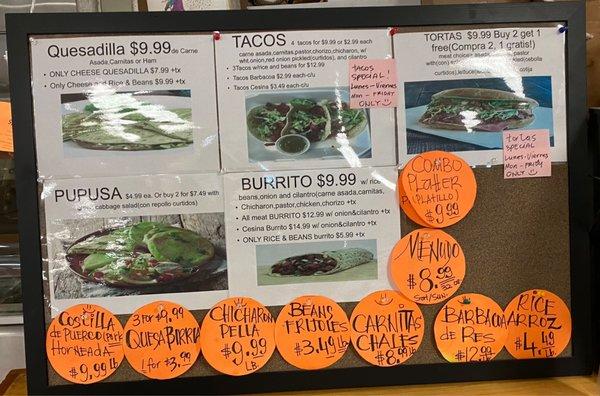 Quesadilla $9.99 de Carne
Asada,Carnitas or Ham
- ONLY CHEESE QUESADILLA $7.99 +tx
- Only Cheese and Rice & Beans $9.99 +tx
TACOS 4 tacos for $9.99 or $2.99 each
carne asada,carnitas,pastor,chorizo,chicharon, w/
wht.onion,red onion pickled(curtidos), and cilantro
- 3Tacos w/rice and beans for $12.99
Tacos Barbacoa $2.99 each-c/u
Tacos Cesina $3.49 each-c/u
tacos
SPECIAL!
Lunes - Viernes
Mon - FRIDAY
ONLY
TORTAS $9.99 Buy 2 get 1
free(Compra 2, 1 gratis!)
tortas
SPECIAL
Lunes - Viernes
Mon - FRI
ONLY
PUPUSA $4.99 ea. Or buy 2 for $7.49 with
cabbage salad(con repollo curtidos)
BURRITO $9.99 w/ rice
beans,onion and cilantro(carne asada,carnitas,
- Chicharon,pastor,chicken,chorizo +tx
- All meat BURRITO $12.99 w/ onion&cilantro
- Cesina Burrito $14.99 w/ onion&cilantro
- ONLY RICE & BEANS burrito $5.99 +tx
COMBO
PLATTER
(PLATILLO)
$9.99
MENUDO
$8.99
32 OZ
SAT/SUN
COSTILLA
DE PUERCO
HORNEADA
$9.99 LB
3 FOR $9.99
QUESABIRRIA
1 for $3.99
CHICHARON
PELLA
$9.99
LB
BEANS
FRIJOLES
$3.49 lb
CARNITAS
$8.99 LB
BARBACOA
DE RES
$12.99
RICE
ARROZ
$4.49